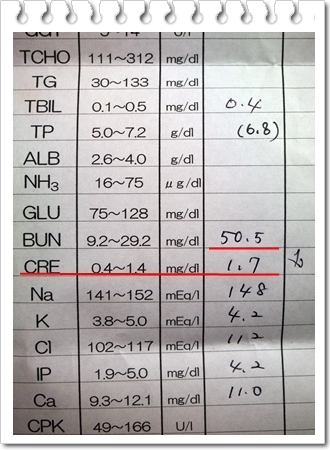 GGT 5~14 U/l
TCHO 111~312 mg/dl
TG 30~133 mg/dl
TBIL 0.1~0.5 mg/dl 0.4
TP 5.0~7.2 g/dl (6.8)
ALB 2.6~4.0 g/dl
NH₃ 16~75 μg/dl
GLU 75~128 mg/dl
BUN 9.2~29.2 mg/dl 50.5
CRE 0.4~1.4 mg/dl 1.7
Na 141~152 mEq/l 148
K 3.8~5.0 mEq/l 4.2
Cl 102~117 mEq/l 112
IP 1.9~5.0 mg/dl 4.2
Ca 9.3~12.1 mg/dl 11.0
CPK 49~166 U/l